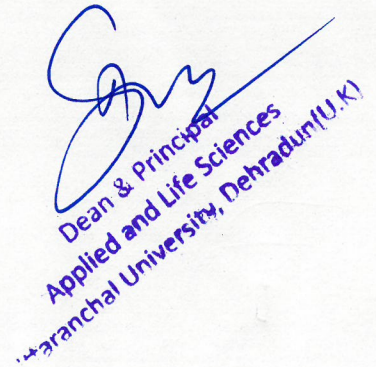 Dean & Principal
Applied and Life Sciences
ttaranchal University, Dehradun(U.K)